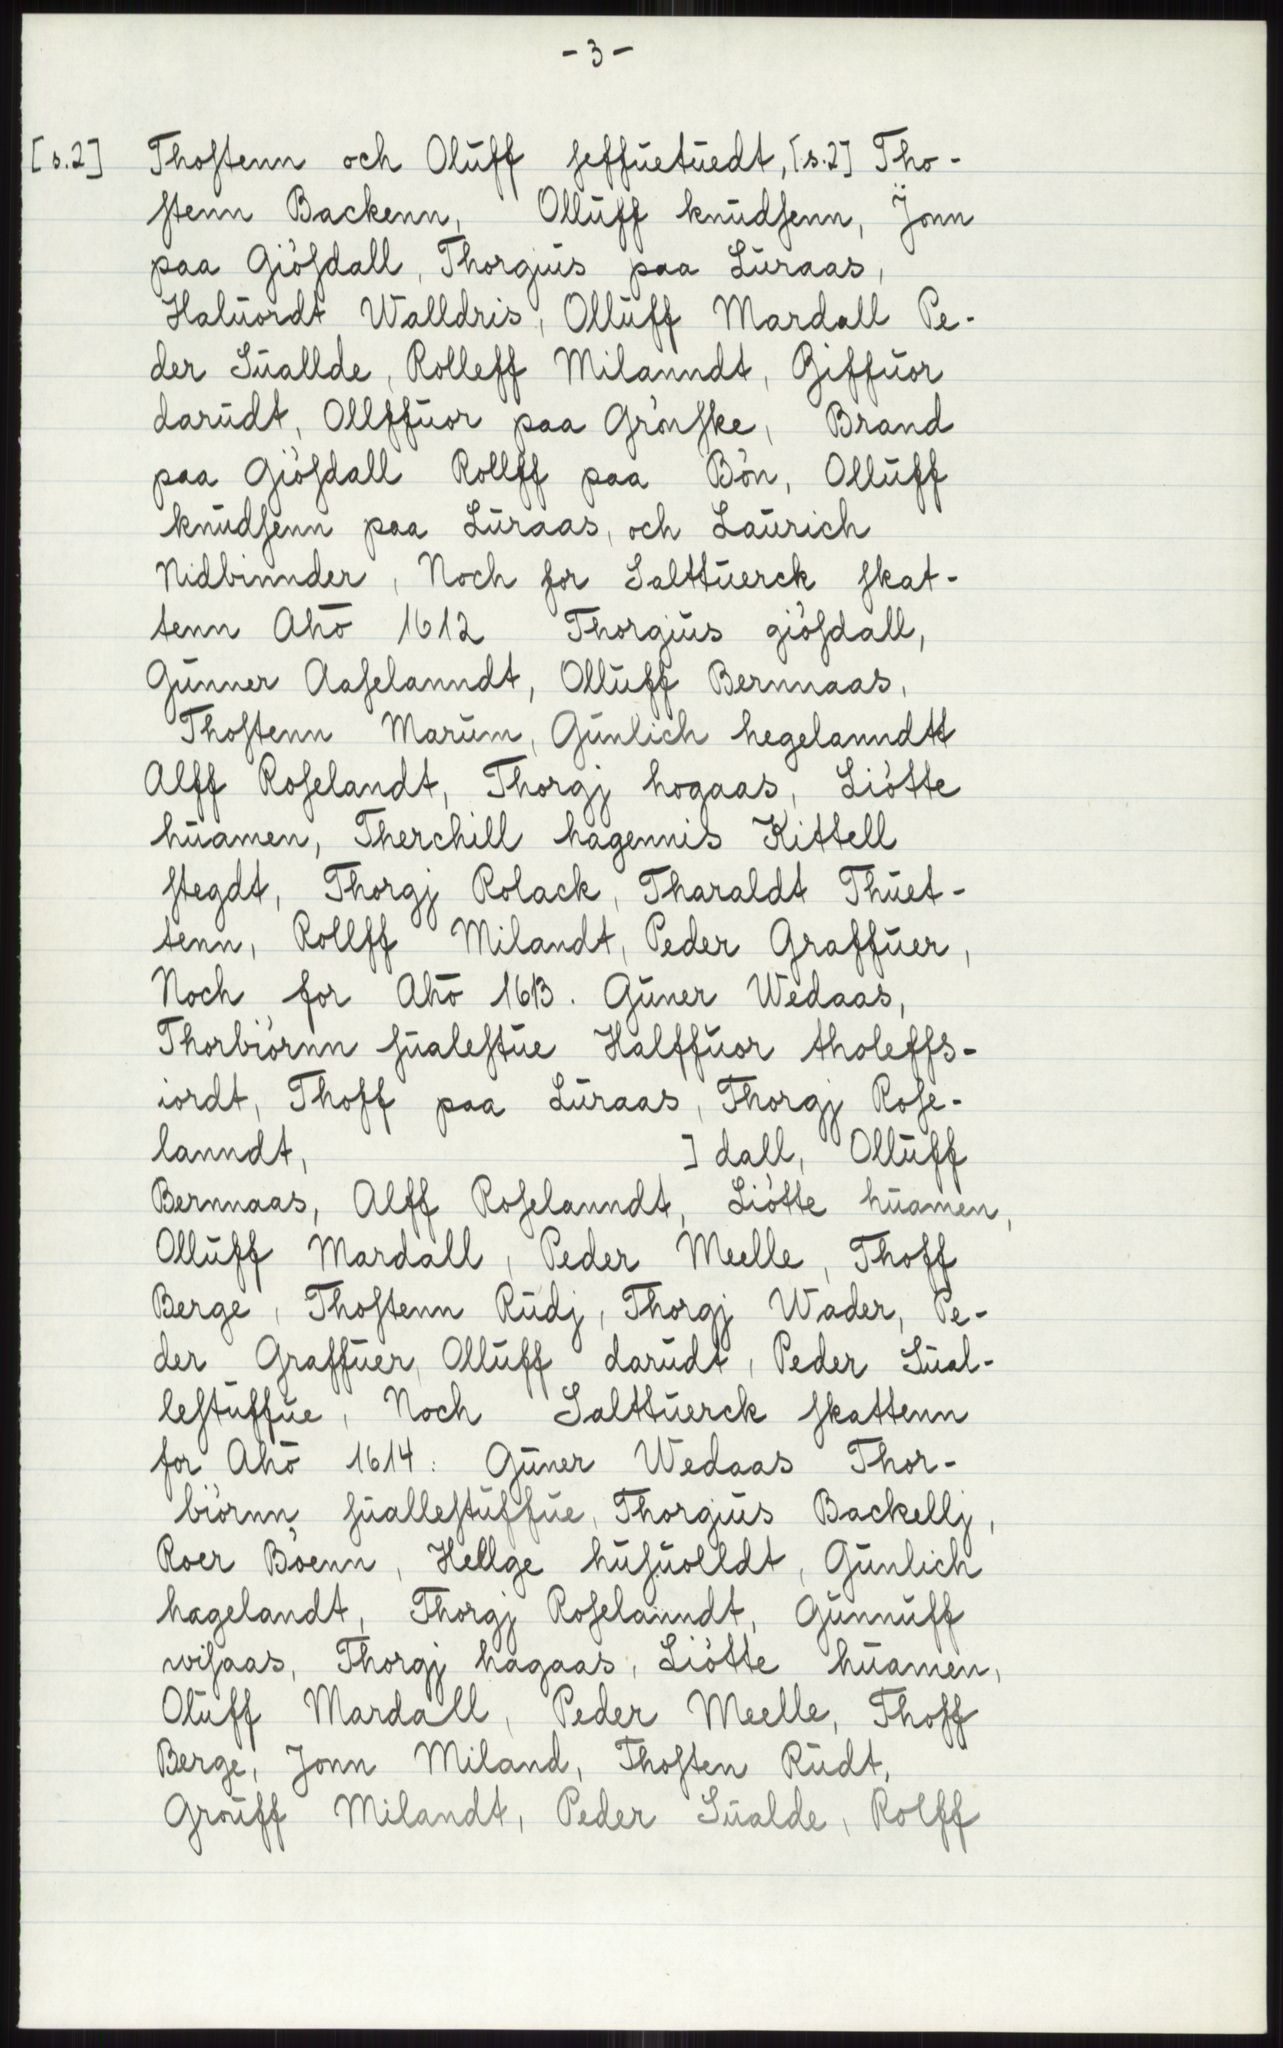 - 3 -
[s.2] Thostenn och Olŭff seffŭetŭedt, [s.2] Tho-
stenn Backenn, Ollŭff knŭdsenn, Jonn
paa Giösdall, Thorgiŭs paa Lŭraas,
Halŭordt Walldris, Ollŭff Mardall Pe-
der Sŭallde, Rolleff Milanndt, Giffŭor
darŭdt, Ollffŭor paa Grönske, Brand
paa Giösdall Rollff paa Bön, Ollŭff
knŭdsenn paa Lŭraas, och Laŭrich
Nidbinnder, Noch for Salttŭerck skat-
tenn Año 1612 Thorgiŭs giösdall,
Gŭnner Aaselanndt, Ollŭff Bernnaas,
Thostenn Marŭm, Gŭnlich hegelanndtt
Alff Roselandt, Thorgj hogaas, Liötte
hŭamen, Therchill hagennis Kittell
stegdt, Thorgj Rolack, Tharaldt Thŭet-
tenn, Rollff Milandt, Peder Graffŭer,
Noch for Año 1613. Gŭner Wedaas,
Thorbiörnn sŭalestŭe Halffŭor tholeffs-
iordt, Thoff paa Lŭraas, Thorgj Rose-
lanndt, ] dall, Ollŭff
Bernnaas, Alff Roselanndt, Liötte hŭamen,
Ollŭff Mardall, Peder Meelle, Thoff
Berge, Thostenn Rŭdj, Thorgj Wader, Pe-
der Graffŭer, Ollŭff darŭdt, Peder Sŭal-
lestŭffŭe, Noch Salttŭerck skattenn
for Año 1614: Gŭner Wedaas Thor-
biörnn sŭallestŭffŭe, Thorgiŭs Backellj,
Roer Böenn, Hellge hŭsŭolldt, Gŭnlich
hagelandt, Thorgj Roselanndt, Gŭnnŭff
wisaas, Thorgj hagaas, Liötte hŭamen,
Olŭff Mardall, Peder Meelle, Thoff
Berge, Jonn Miland, Thosten Rŭdt,
Groŭff Milandt, Peder Sŭalde, Rolff